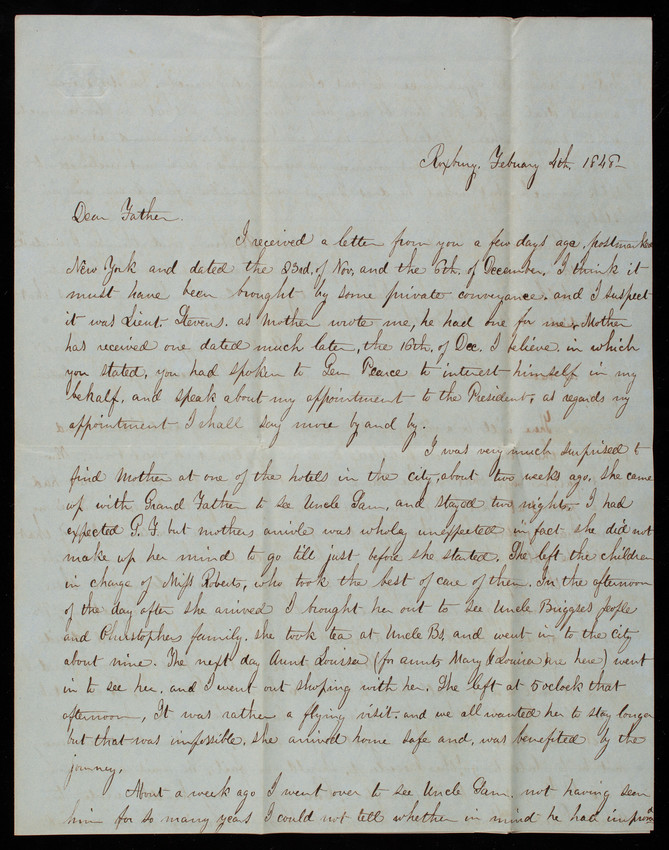 Roxbury. February 4th. 1848-
Dear Father.
I received a letter from you a few days age. postmarked
New York and dated the 23rd. of Nov, and the 6th. of December. I think it
must have been brought by some private conveyance. and I suspect
it was Lieut. Stevens. as Mother wrote me, he had one for me. Mother
has received one dated much later, the 16th. of Dec. I believe in which
you stated, you had spoken to Gen Pearce to interest himself in my
behalf, and speak about my appointment to the President, as regards my
appointment I shall say more by and by.
I was very much surprised to
find Mother at one of the hotels in the city, about two weeks ago, she came
up with Grand Father to see Uncle Sam, and stayed two nights. I had
expected G. F. but mothers arivle was wholy unexpected in fact she did not
make up her mind to go till just before she started. She left the children
in charge of Miss Roberts, who took the best of care of them. In the afternoon
of the day after she arrived I brought her out to see Uncle Briggses people
and Christophers family. she took tea at Uncle Bs, and went in to the city
about nine. The next day Aunt Louissa (for aunts Mary & Louisa are here) went
in to see her. and I went out shoping with her. She left at 5 oclock that
afternoon, It was rather a flying visit. and we all wanted her to stay longer
but that was impossible. she arrived home safe and, was benefited by the
journey.
About a week ago I went over to see Uncle Sam. not having seen
him for so many years I could not tell whether in mind he had improvd